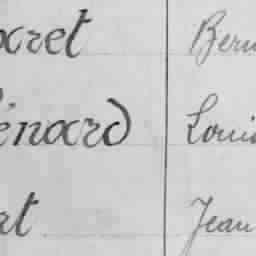 ocret Bern
énard Loui
at Jean